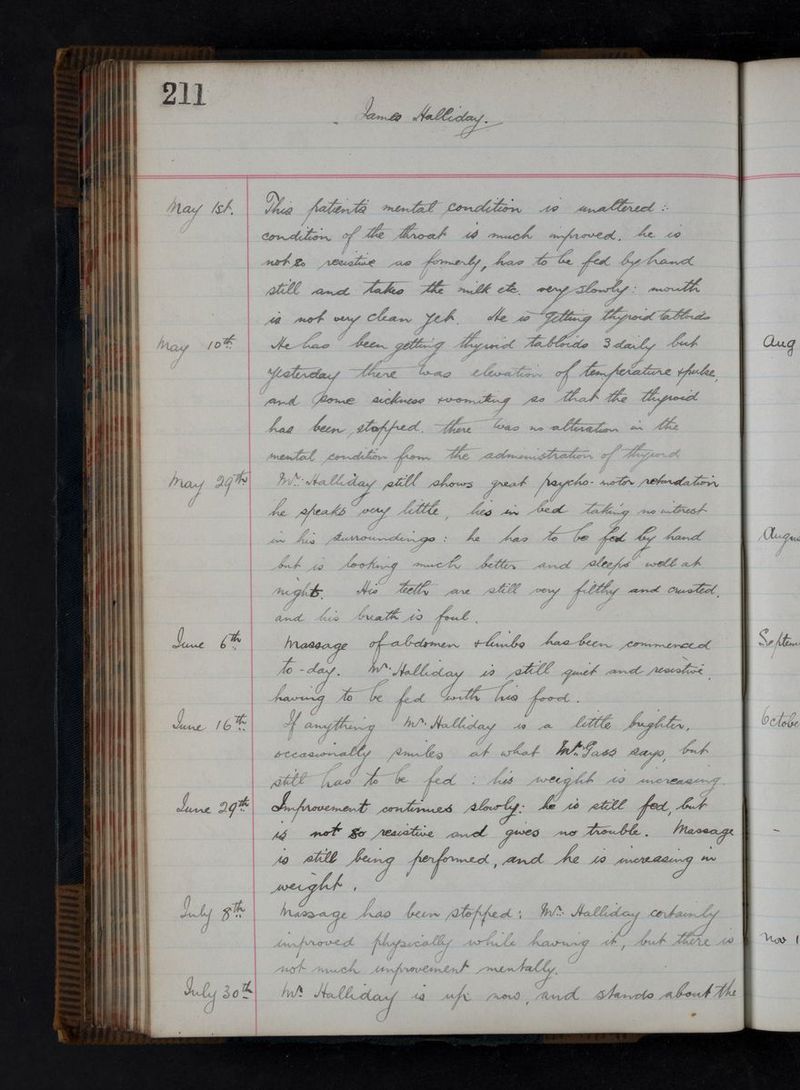 211
James Halliday.
May 1st. This patients mental condition is unaltered :
condition of the throat is much improved. he is
not so resistive as formerly, has to be fed by hand
still and takes the milk etc. very slowly : mouth
is not very clean yet. He is getting thyroid tabloids
May 10th. He has been getting thyroid tabloids 3 daily but
yesterday there was elevation of temperature & pulse,
and some sickness & vomiting so that the thyroid
has been stopped. there was no alteration in the
mental condition from the administration of thyroid
May 29th Mr. Halliday still shows great psycho-motor retardation
he speaks very little, lies in bed taking no interest
in his surroundings : he has to be fed by hand
but is looking much better and sleeps well at
night. His teeth are still very filthy and crusted.
and his breath is foul.
June 6th. Massage of abdomen & limbs has been commenced
to-day. Mr. Halliday is still quiet and resistive,
having to be fed with his food.
June 16th. If anything Mr. Halliday is a little brighter,
occasionally smiles at what Mr. Gass says, but
still has to be fed : his weight is increasing.
June 29th. Improvement continues slowly : he is still fed, but
is not so resistive and gives no trouble. Massage
is still being performed, and he is increasing in
weight.
July 8th. Massage has been stopped ; Mr. Halliday certainly
improved physically while having it, but there is
not much improvement mentally.
July 30th Mr. Halliday is up now, and stands about the
Aug
Augus
Septem
Octobe
Nov 1